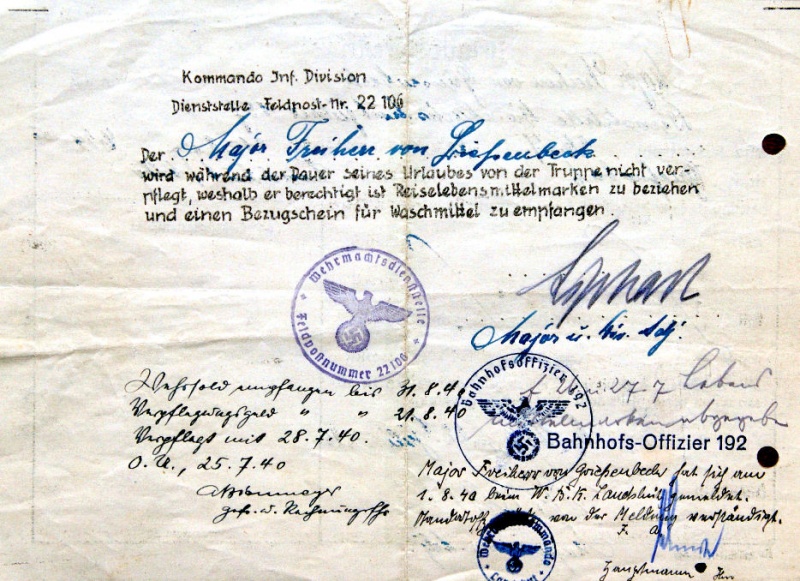 Kommando Inf. Division
Dienststelle Feldpost-Nr. 22 106
Der Major Freiherr von Grießenbeck
wird während der Dauer seines Urlaubes von der Truppe nicht ver-
pflegt, weshalb er berechtigt ist Reiselebensmittelmarken zu beziehen
und einen Bezugschein für Waschmittel zu empfangen.
Major u. Div. Adj.
Wehrmachtsdienstelle
Feldpoßnummer 22106
Wehrsold empfangen bis 31.8.40
Verpflegungsgeld " " 21.8.40
Verpflegt mit 28.7.40.
O.U., 25.7.40
Bahnhofsoffizier 192
27.7
abgegeben
Bahnhofs-Offizier 192
Major Freiherr von Griessenbeck hat sich am
1.8.40 beim W.B.K. Landshut gemeldet.
von der Meldung verständigt.
Hauptmann